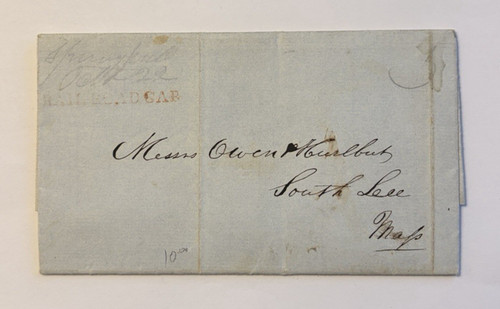 Springfield
Feb 22
RAILROAD CAR
Messrs Owen & Hurlbut
South Lee
Mass
10⁰⁰